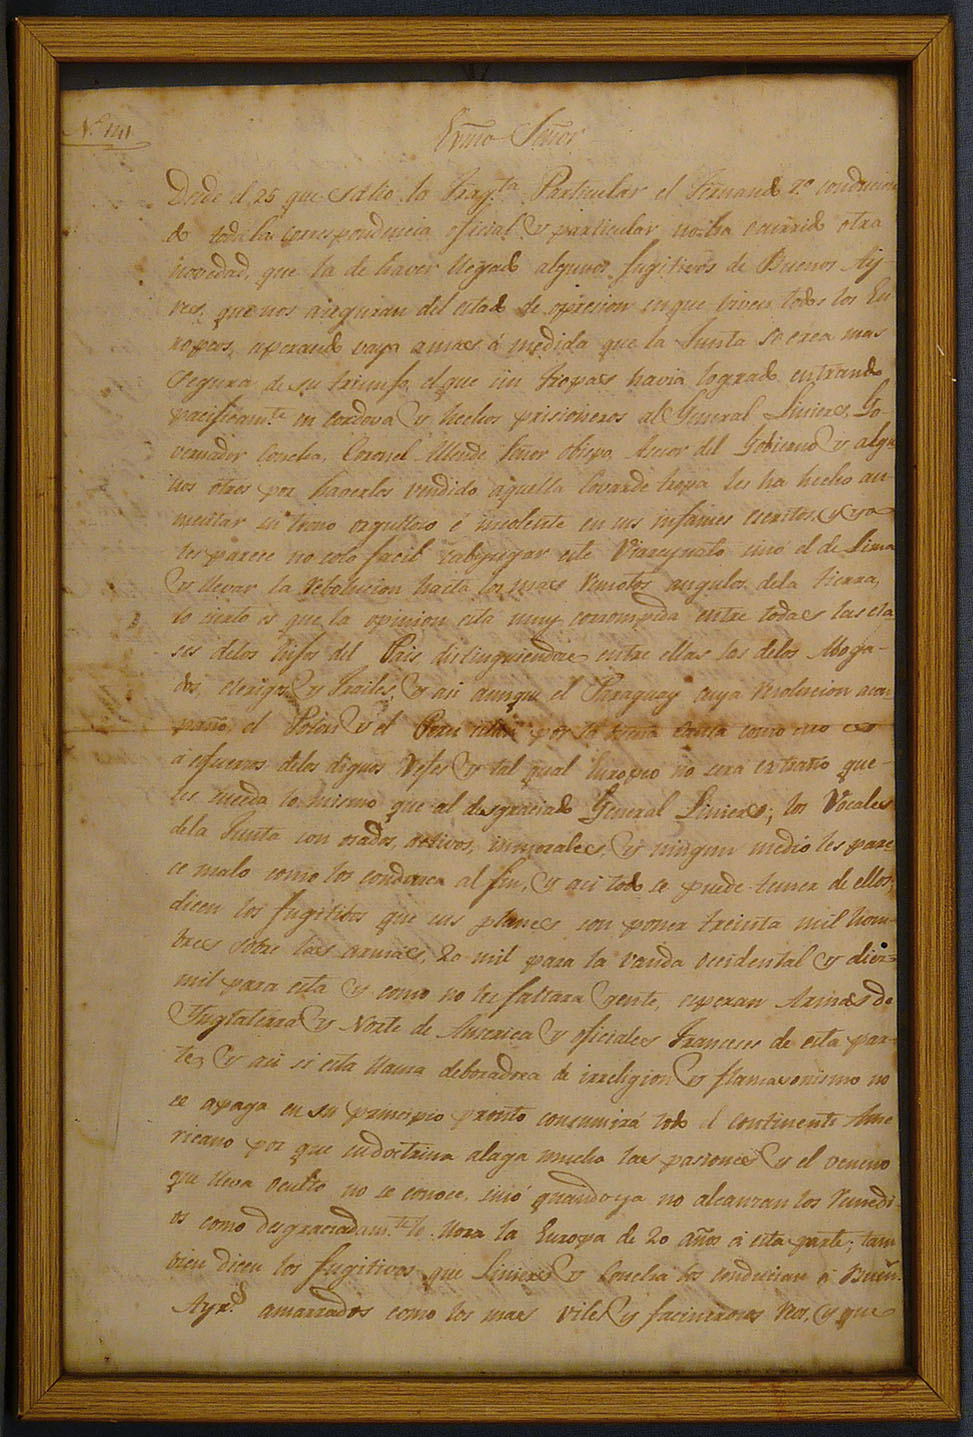 N.º 141
Exmo Señor
Desde el 25 que salio la Frag.ta Particular el Fernando 7º conduciendo
do toda la correspondencia oficial y particular no ha ocurrido otra
novedad, que la de haver llegado algunos fugitivos de Buenos Ay-
res, que nos aseguran del estado de opresion en que viven todos los Eu
ropeos, esperando vaya a mas á medida que la Junta se crea mas
segura de su triunfo, el que sin tropas havia logrado entrando
pacificam.te en Cordova y hechos prisioneros al General Liniers, Go-
vernador Concha, Coronel Allende Señor Obispo, Asesor del Gobierno y algu
nos otros por haverlos vendido aquella covarde tropa les ha hecho au
mentar su tono orgulloso é insolente en sus infames escritos, y ya
les parece no solo facil subyugar este Virreynato sinó el de Lima
y llevar la rebolucion hasta los mas remotos angulos dela tierra,
lo cierto es que la opinion está muy corrompida entre todas las cla
ses delos hijos del Pais distinguiendose entre ellas las delos Aboga-
dos, clerigos y Frailes, y asi aunque el Paraguay cuya resolucion acom
paño, el Potosi y el Peru estan por la buena causa como
á esfuerzos delos dignos Xefes y tal qual Europeo no será extraño que
les suceda lo mismo que al desgraciado General Liniers; los Vocales
dela Junta son osados, activos, inmorales, y ningun medio les pare
ce malo como los conduzca al fin, y asi todo se puede temer de ellos;
dicen los fugitibos que sus planes son poner treinta mil hom-
bres sobre las armas, 20 mil para la vanda occidental y diez
mil para esta y como no les faltara gente, esperan Armas de
Inglaterra y Norte de America y oficiales Franceses de esta par-
te, y asi si esta llama deboradora de irreligion y flamasonismo no
se apaga en su principio pronto consumirá todo el continente Ame
ricano por que su doctrina alaga mucho las pasiones y el veneno
que lleva oculto no se conoce, sinó quando ya no alcanzan los remedi-
os como desgraciadam.te lo llora la Europa de 20 años á esta parte; tam
bien dicen los fugitivos que Liniers y Concha los conducian á Buen.
Ayr.s amarrados como los mas viles y facinerosos reos, y que